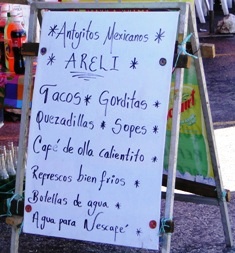 * Antojitos Mexicanos *
* ARELI *
Tacos * Gorditas *
Quezadillas * Sopes *
Café de olla calientito *
Represcos bien frios *
Bolellas de agua *
Agua para Nescape' *